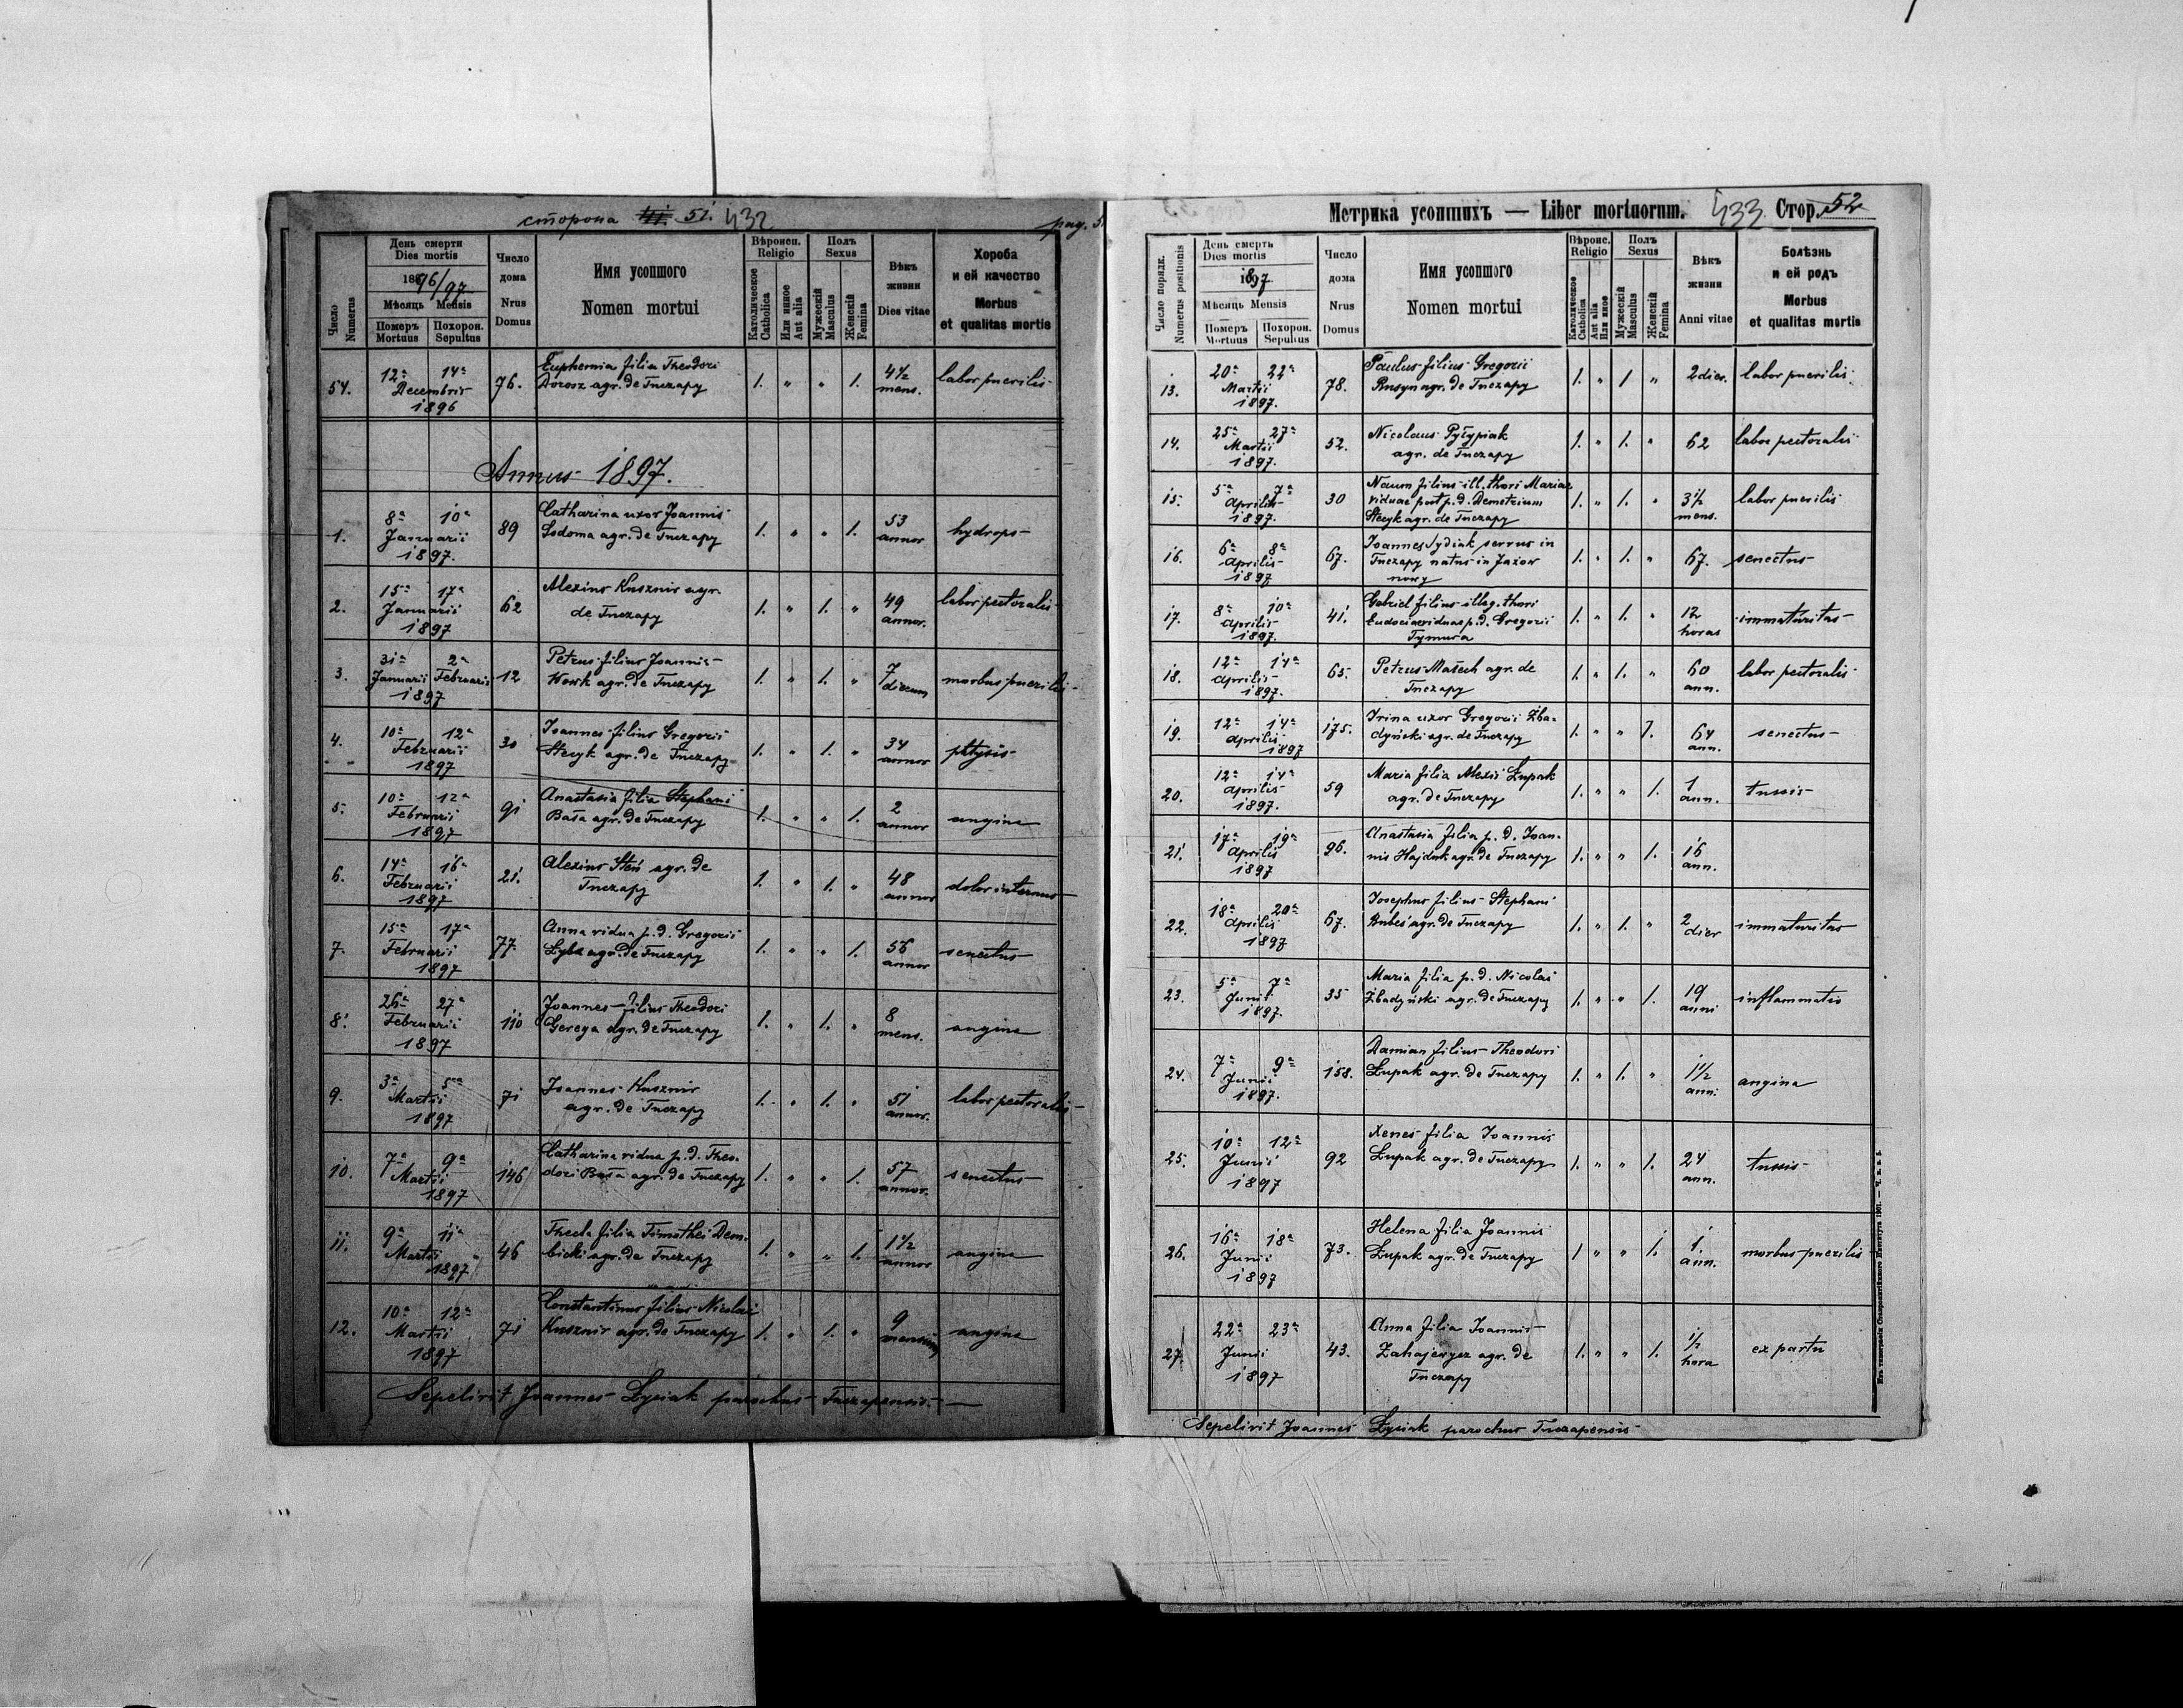 сторона 51. 432
pag. 5
Число Numerus
День смерти Dies mortis
1896/97
Мѣсяць Mensis
Померъ Mortuus
Похорон. Sepultus
Число дома Nrus Domus
Имя усопшого Nomen mortui
Вѣроисп. Religio
Католическое Catholica
Или инное Aut alia
Полъ Sexus
Мужескій Masculus
Женскій Femina
Вѣкъ жизни Dies vitae
Хороба и ей качество Morbus et qualitas mortis
54. 12a 14a Decembris 1896 76. Euphemia filia Theodori
Dorosz agr. de Tuczapy 1. " " 1. 4 1/2 mens. labor puerilis
Annus 1897.
1. 8a 10a Januarii 1897. 89 Catharina uxor Joannis
Sodoma agr. de Tuczapy 1. " " 1. 53 annor hydrops
2. 15a 17a Januarii 1897 62 Alexius Kusznir agr.
de Tuczapy 1. " 1. " 49 annor. labor pectoralis
3. 31a Januarii 2a Februarii 1897 12 Petrus filius Joannis
Wowk agr. de Tuczapy 1. " 1. " 7 dierum morbus puerilis
4. 10a 12a Februarii 1897 30 Joannes filius Gregorii
Stecyk agr. de Tuczapy 1. " 1. " 34 annor phtysis
5. 10a 12a Februarii 1897 91 Anastasia filia Stephani
Basa agr. de Tuczapy 1. " " 1. 2 annor angina
6. 14a 16a Februarii 1897 21. Alexius Steń agr. de
Tuczapy 1. " 1. " 48 annor dolor internus
7. 15a 17a Februarii 1897 77. Anna vidua p. d. Gregorii
Łyba agr. de Tuczapy 1. " " 1. 56 annor senectus
8. 26a 27a Februarii 1897 110 Joannes filius Theodori
Gerega agr. de Tuczapy 1. " 1. " 8 mens. angina
9. 3a 5a Martii 1897 71 Joannes Kusznir
agr. de Tuczapy 1. " 1. " 51 annor. labor pectoralis
10. 7a 9a Martii 1897 146 Catharina vidua p. d. Theo-
dori Basa agr. de Tuczapy 1. " " 1. 57 annor. senectus
11. 9a 11a Martii 1897 46 Thecla filia Timothei Dem-
bicki agr. de Tuczapy 1. " " 1. 1 1/2 annor angina
12. 10a 12a Martii 1897 71 Constantinus filius Nicolai
Kusznir agr. de Tuczapy 1. " 1. " 9 mensium angina
Sepelivit Joannes Łysiak parochus Tuczapensis
Метрика усопшихъ — Liber mortuorum. 433 Стор. 52
Число порядк. Numerus positionis
День смерть Dies mortis
1897
Мѣсяць Mensis
Померъ Mortuus
Похорон. Sepultus
Число дома Nrus Domus
Имя усопшого Nomen mortui
Вѣроис. Religio
Католическое Catholica
Aut alia Или иное
Полъ Sexus
Мужескій Masculus
Женскій Femina
Вѣкъ жизни Anni vitae
Болѣзнь и ей родъ Morbus et qualitas mortis
13. 20a 22a Martii 1897. 78. Paulus filius Gregorii
Rusyn agr. de Tuczapy 1. " 1 " 2 dier. labor puerilis.
14. 25a 27a Martii 1897. 52. Nicolaus Pyłypiak
agr. de Tuczapy 1. " 1. " 62 labor pectoralis
15. 5a 7a Aprilis 1897. 30 Naum filius ill. thori Mariae
viduae post p. d. Demetrium
Stecyk agr. de Tuczapy 1. " 1. " 3 1/2 mens. labor puerilis
16. 6a 8a Aprilis 1897 67. Joannes Sydiak servus in
Tuczapy natus in Jazow
nowy 1. " 1. " 67. senectus
17. 8a 10a Aprilis 1897. 41. Gabriel filius illeg. thori
Eudociae viduae p. d. Gregorii
Tymura 1. " 1. " 12 horas immaturitas
18. 12a 14a Aprilis 1897. 65. Petrus Małech agr. de
Tuczapy 1. " 1. " 60 ann. labor pectoralis
19. 12a 14a Aprilis 1897 175. Irina uxor Gregorii Zba-
dyński agr. de Tuczapy 1. " " 1. 64 ann. senectus
20. 12a 14a Aprilis 1897. 59 Maria filia Alexii Łupak
agr. de Tuczapy 1. " " 1. 1 ann. tussis
21. 17a 19a Aprilis 1897 96. Anastasia filia p. d. Joan-
nis Hajduk agr. de Tuczapy 1. " " 1. 16 ann.
22. 18a 20a Aprilis 1897 67. Josephus filius Stephani
agr. de Tuczapy 1. " 1. " 2 dier immaturitas
23. 5a 7a Junii 1897. 35 Maria filia p. d. Nicolai
Zbadyński agr. de Tuczapy 1. " " 1. 19 anni inflammatio
24. 7a 9a Junii 1897. 158. Damian filius Theodori
Łupak agr. de Tuczapy 1. " 1. " 1 1/2 ann. angina
25. 10a 12a Junii 1897 92 Xenes filia Joannis
Łupak agr. de Tuczapy 1. " " 1. 24 ann. tussis
26. 16a 18a Junii 1897 73. Helena filia Joannis
Łupak agr. de Tuczapy 1 " " 1. 1. ann. morbus puerilis
27. 22a 23a Junii 1897 43. Anna filia Joannis
Zahajewycz agr. de
Tuczapy 1. " " 1. 1/2 hora ex partu
Sepelivit Joannes Łysiak parochus Tuczapensis
Изъ типографіи Ставропигійского Института 1901.